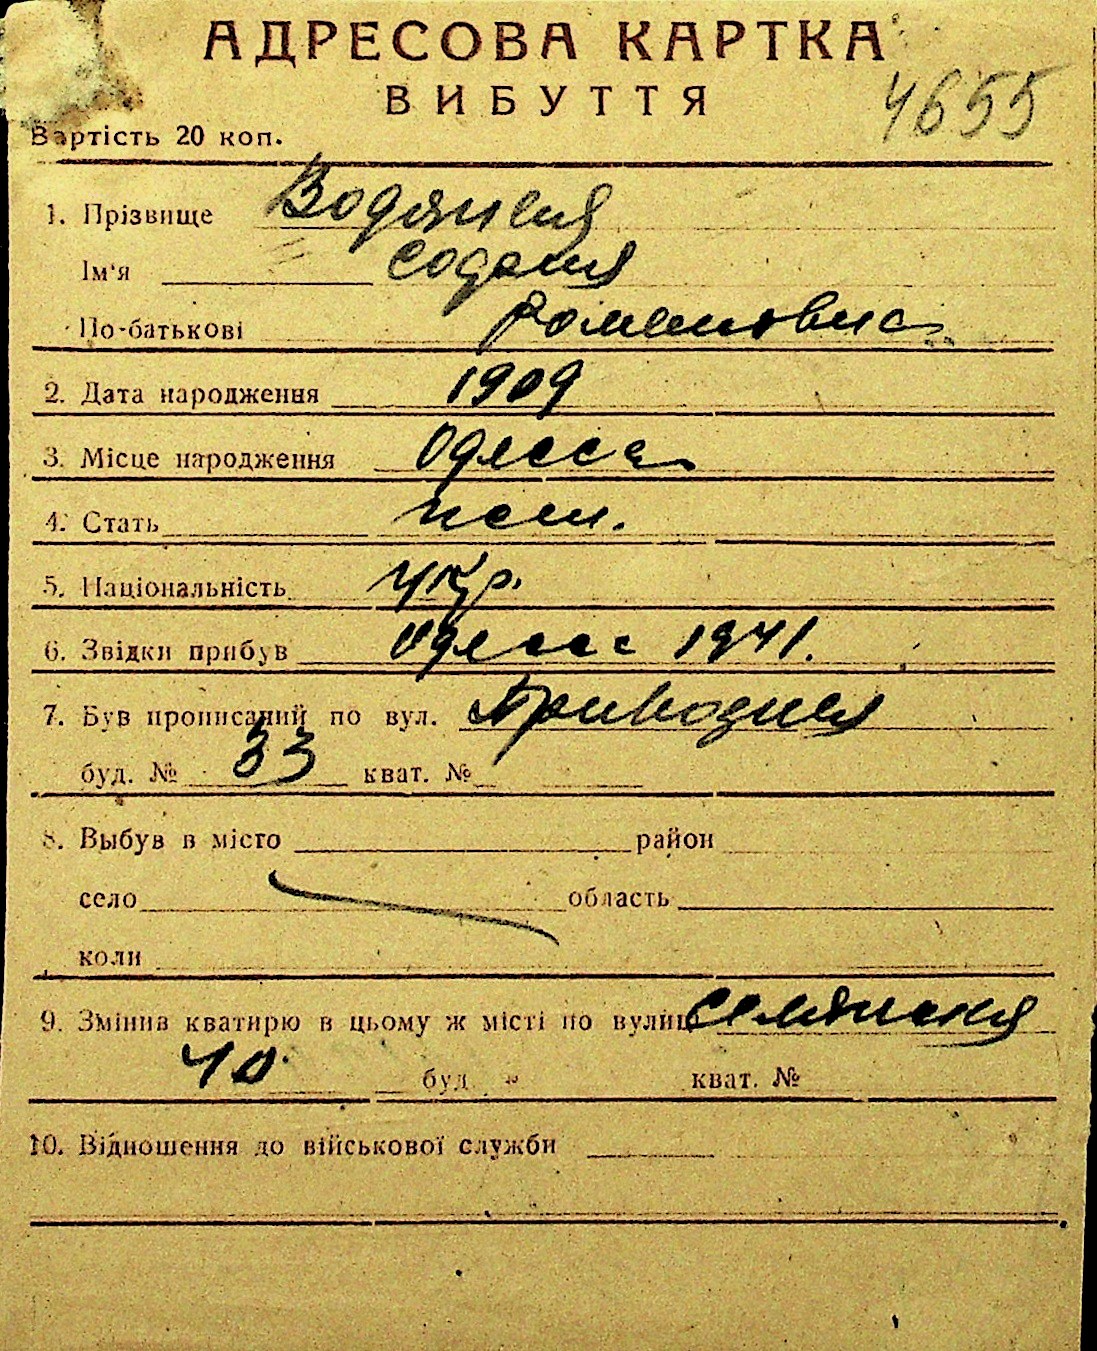 АДРЕСОВА КАРТКА
ВИБУТТЯ
4655
Вартість 20 коп.
1. Прізвище Водяная
Ім'я
По-батькові Романовна
2. Дата народження 1909
3. Місце народження Одесса
4. Стать жен.
5. Національність укр.
6. Звідки прибув Одесс 1941.
7. Був прописаний по вул.
буд. № 33 кват. №
8. Выбув в місто район
село область
коли
9. Змінив кватирю в цьому ж місті по вулиці
10 буд № кват. №
10. Відношення до військової служби